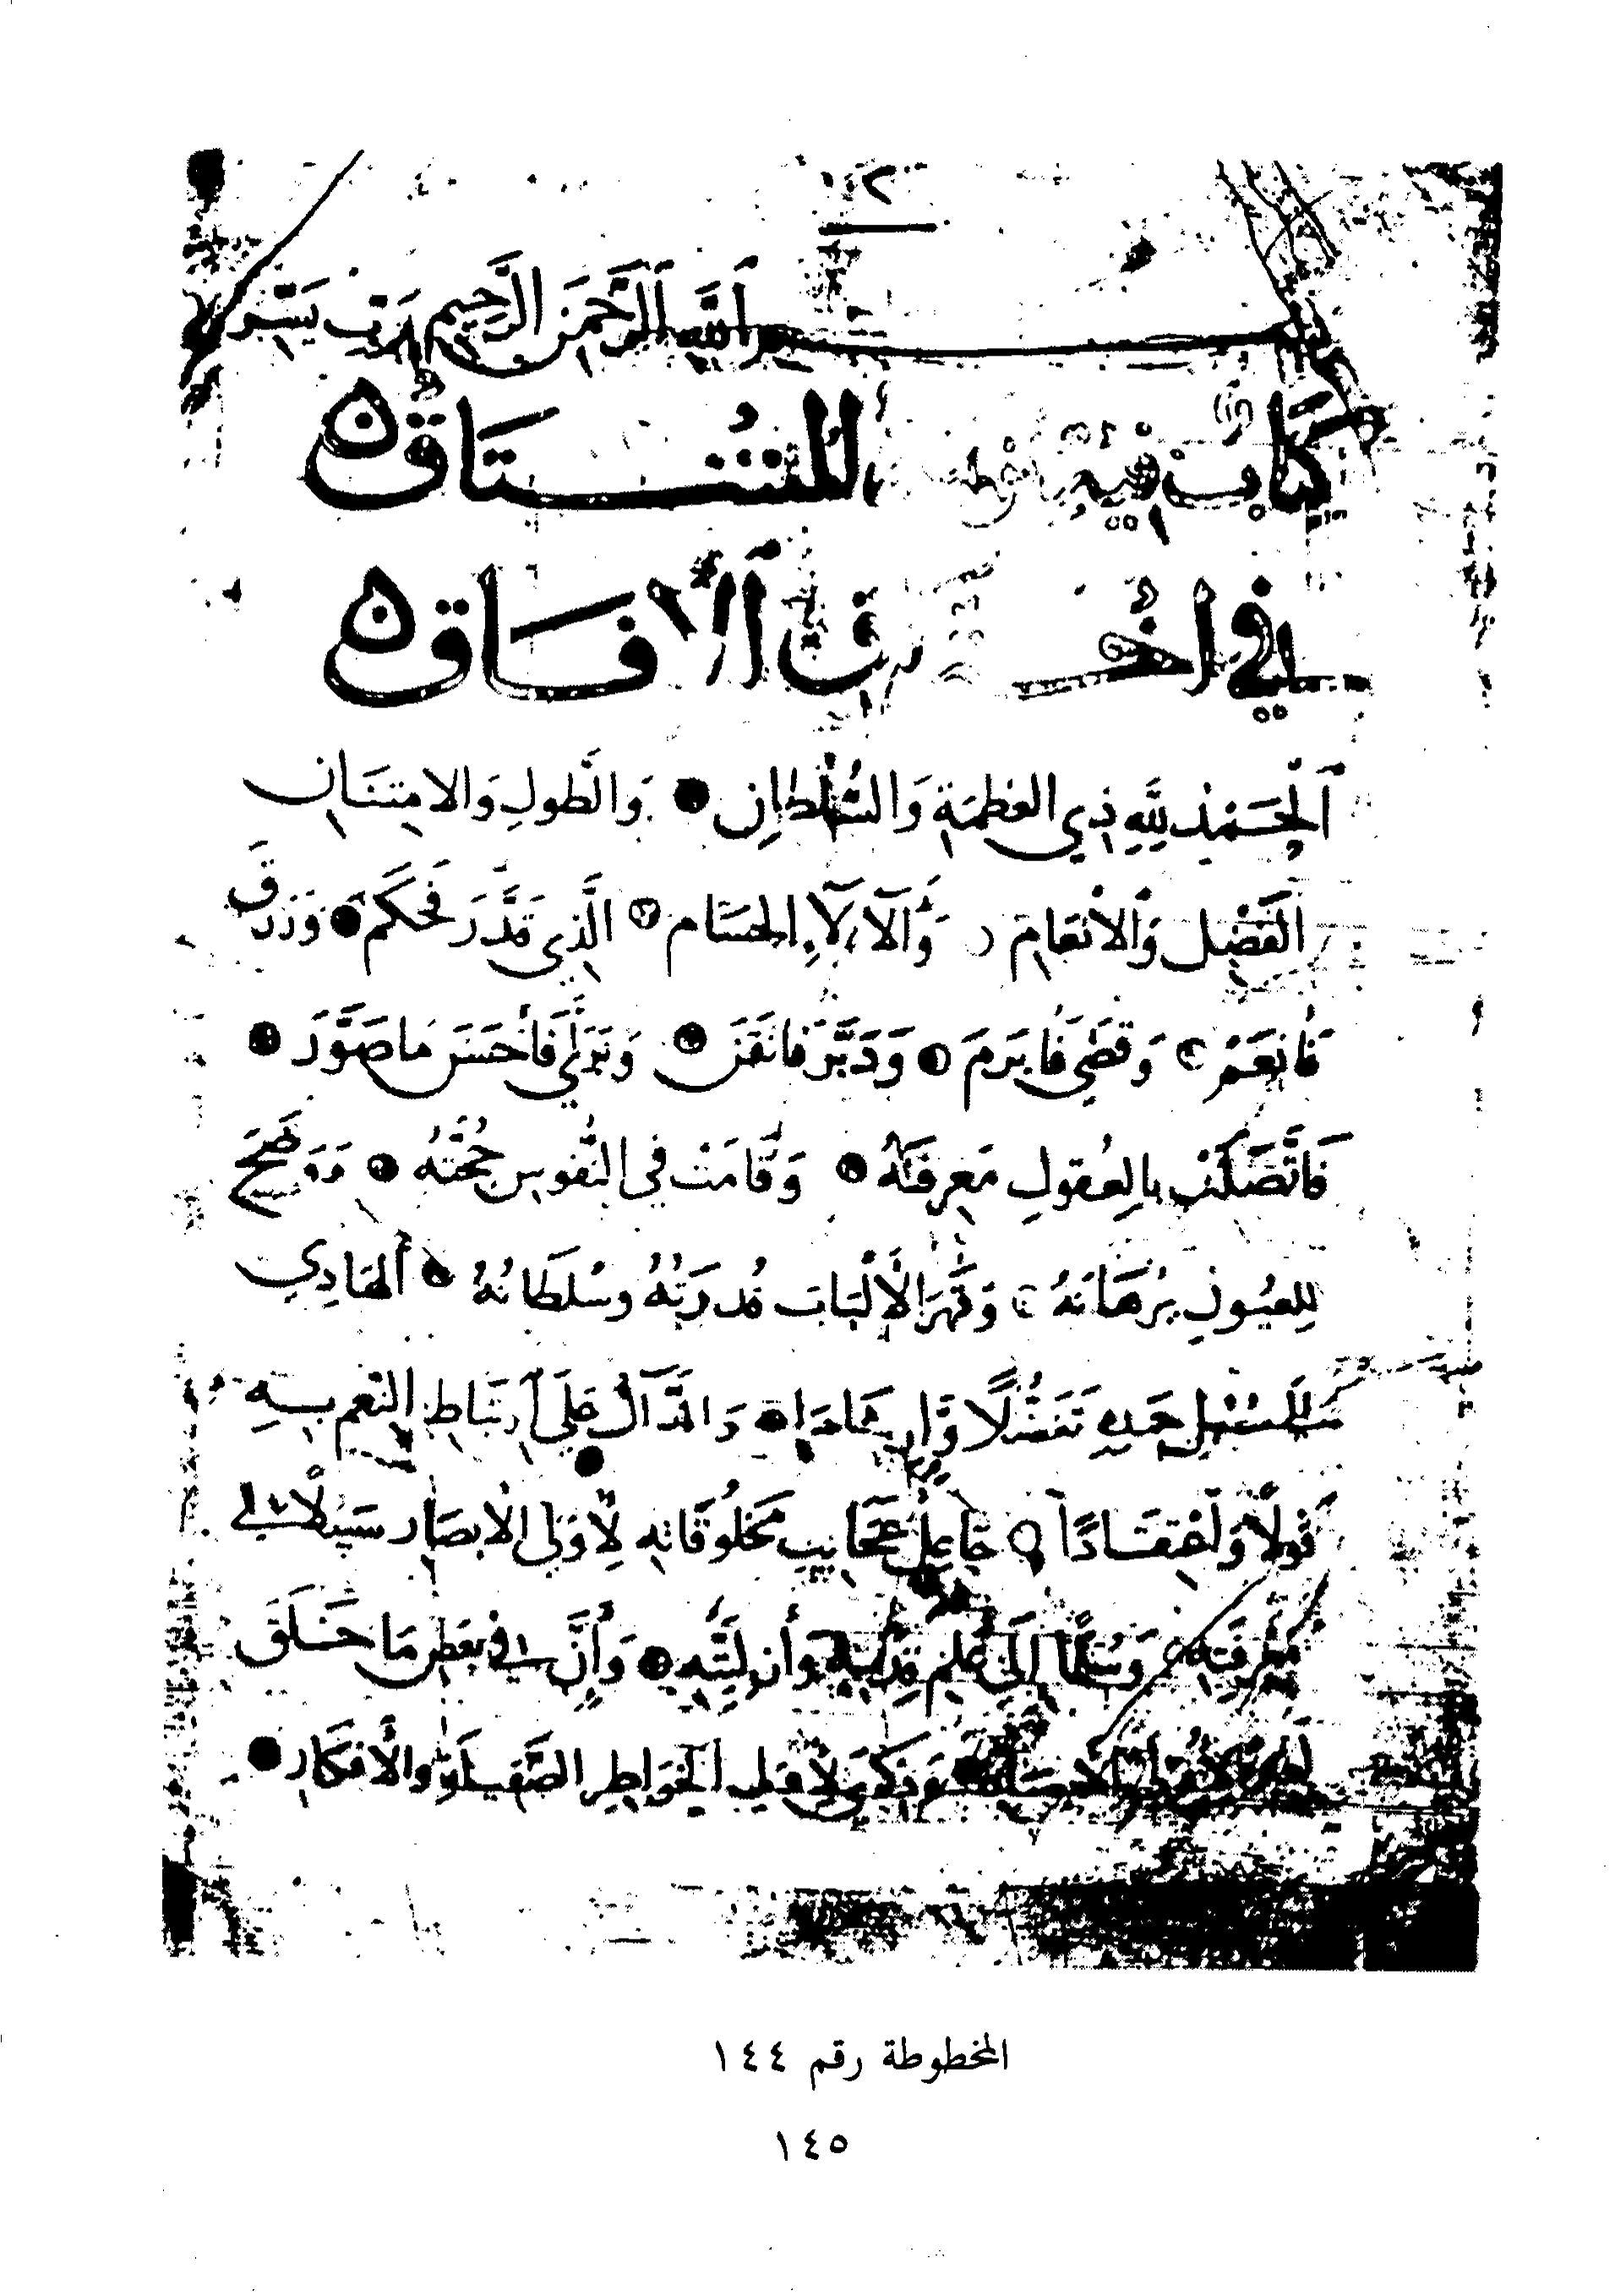 ٢
بسم اَللَّهِ اَلرَّحْمَنِ الرَّحِيمِ رَبِّ يَسِّر
كِتَابٌ فِيهِ المُشْتَاق
فِي اخْـ ـراق اَلْأفَاق
اَلْحَمْدُ لِلَّهِ ذِي العَظَمَةِ وَالسُّلْطَانِ وَالطَّولِ وَالامِتنَانِ
الفَضْلِ وَالْأنعَامِ وَالآلآءِ الجسَام الَّذِي قَدَّرَ فَحَكَم وَرَزَقَ
فَأنعَمَ وَقَضَى فَأبرَمَ وَدَبَّرَ فَاتقَنَ وَبَرَأَ فَأحسَنَ مَا صَوَّرَ
فَاتَّصَلَتْ بِالعُقولِ مَعرِفَتُهُ وَقَامَتْ فِي النُّفوسِ حُجَّتُهُ وَوَضَحَ
لِلعيُونِ بُرْهَانُهُ وَقَهَرَ الْأَلْبَابَ قُدرَتُهُ وسُلطَانُهُ اَلهَادِي
حَمدِهِ تَفَضُّلًا وَّارشَادَا وَالدَّالّ عَلَى اَرتبَاطِ النّعَم بِهِ
قَولًا وَاَعْتِقَادًا جَاعِلُ عَجَايِبِ مَخلُوقَاتِهِ لِأولِى الْأبصَار سَبِيلًا إلى
مَعْرِفَتِهِ وَسُلَّمًا إلَى عِلمِ قِدَمِهِ وَأزَلِيَّتِهِ وَأنَّ في بَعضِ مَا خَلَقَ
وَذكرَى لِأولِى الخَوَاطِرِ الصَّقِيلَةِ وَالْأفكَارِ
المخطوطة رقم ١٤٤
١٤٥